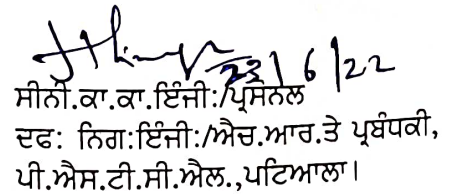 23/6/22
ਸੀਨੀ.ਕਾ.ਕਾ.ਇੰਜੀ:/ਪ੍ਰਸੋਨਲ
ਦਫ: ਨਿਗ:ਇੰਜੀ:/ਐਚ.ਆਰ.ਤੇ ਪ੍ਰਬੰਧਕੀ,
ਪੀ.ਐਸ.ਟੀ.ਸੀ.ਐਲ.,ਪਟਿਆਲਾ।